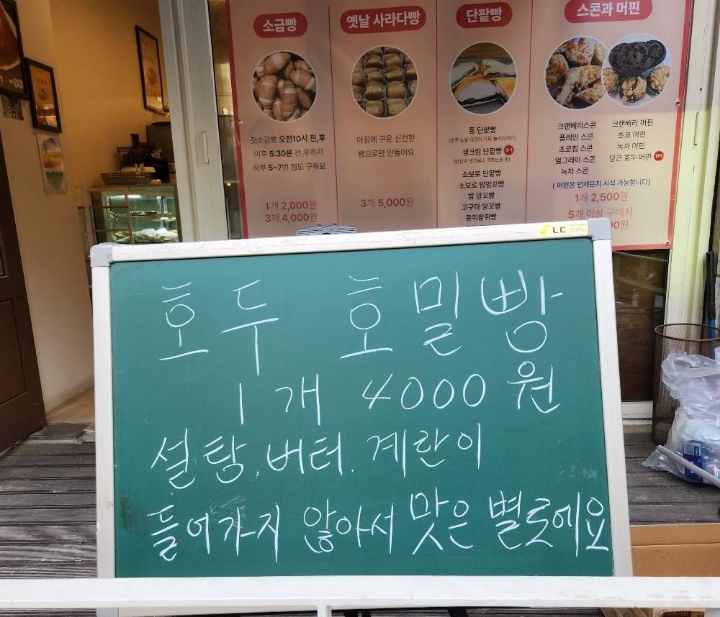 소금빵
갓소금빵 오전10시 전,후
이후 5:30분 전,후까지
하루 5~7번 정도 구워요
1개 2,000원
3개 4,000원
옛날 사라다빵
아침에 구운 신선한
빵으로만 만들어요
3개 5,000원
단팥빵
통 단팥빵
생크림 단팥빵
소보로 단팥빵
소보로 밤앙꼬빵
쌀 앙꼬빵
고구마 앙꼬빵
스콘과 머핀
크랜베리스콘
플레인 스콘
초코칩 스콘
얼그레이 스콘
녹차 스콘
크랜베리 머핀
초코 머핀
녹차 머핀
당근 호두 머핀
( 머핀은 언제든지 시식 가능합니다 )
1개 2,500원
5개 이상 구매시
LC
호두 호밀빵
1개 4000원
설탕, 버터. 계란이
들어가지 않아서 맛은 별로에요